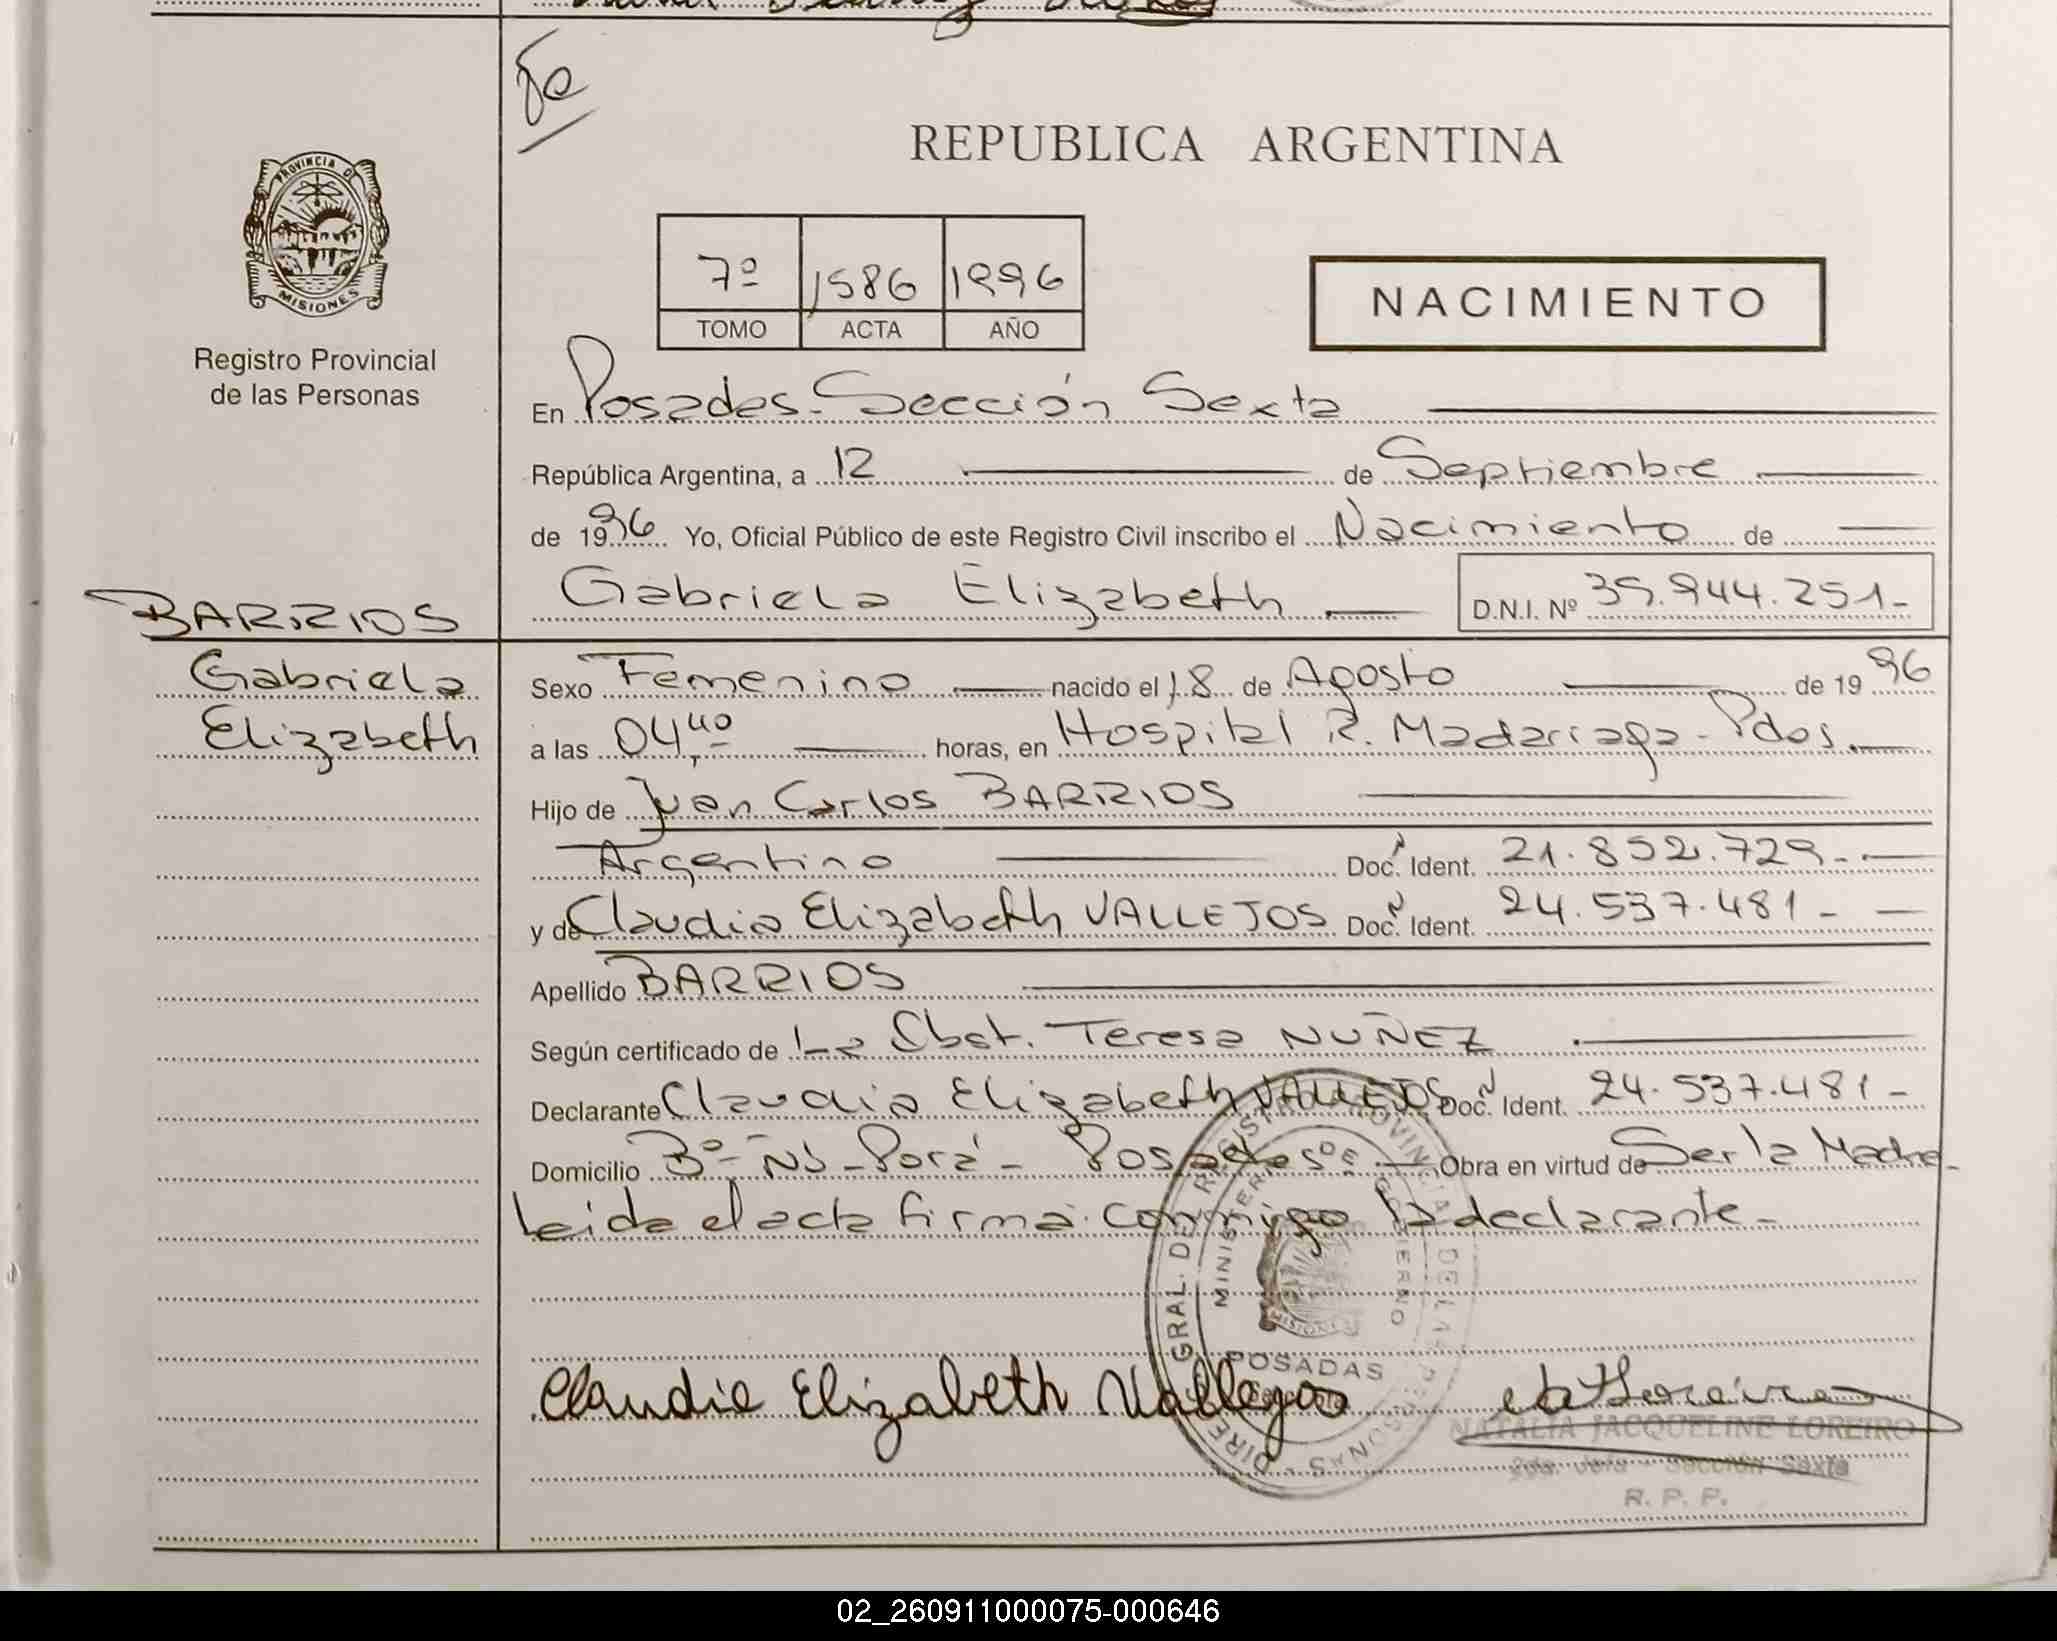 REPUBLICA ARGENTINA
PROVINCIA D
MISIONES
Registro Provincial
de las Personas
7º 1586 1996
TOMO ACTA AÑO
NACIMIENTO
En Posadas - Sección Sexta
República Argentina, a 12 de Septiembre
de 1996 Yo, Oficial Público de este Registro Civil inscribo el Nacimiento de
Gabriela Elizabeth D.N.I. Nº 39.944.251-
BARRIOS
Gabriela
Elizabeth
Sexo Femenino nacido el 18 de Agosto de 1996
a las 04,40 horas, en Hospital R. Madariaga - Pdas.
Hijo de Juan Carlos BARRIOS
Argentino Doc. Ident. 21.852.729-
y de Claudia Elizabeth VALLEJOS Doc. Ident. 24.537.481-
Apellido BARRIOS
Según certificado de La Obst. Teresa NUÑEZ
Declarante Claudia Elizabeth VALLEJOS Doc. Ident. 24.537.481-
Domicilio Bº Ñu-Porá - Posadas Obra en virtud de Ser la Madre-
Leida el acta firma conmigo la declarante-
POSADAS
Claudia Elizabeth Vallejos
NATALIA JACQUELINE LOREIRO
Sección Sexta
R. P. P.
02_260911000075-000646